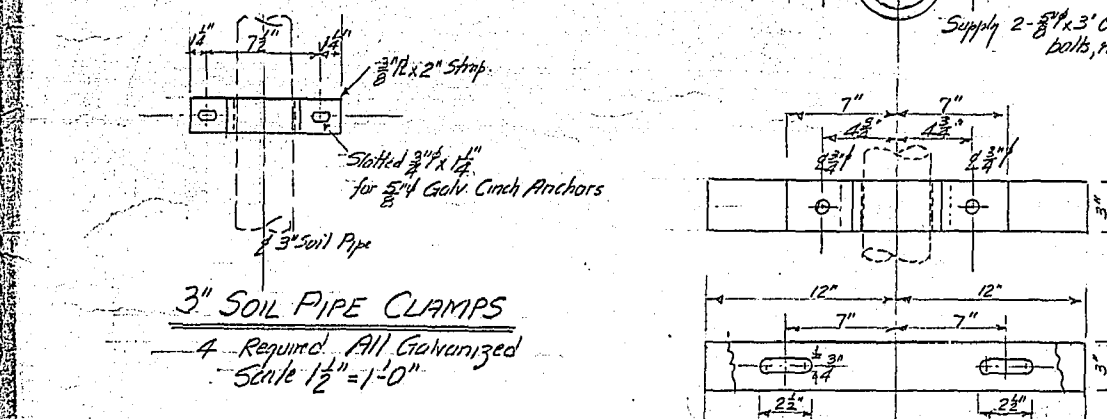 1¼" 7½" 1¼"
⅜" ℞ x 2" Strap
Slotted ¾"ϕ x 1¼"
for ⅝"ϕ Galv. Cinch Anchors
3" Soil Pipe
3" SOIL PIPE CLAMPS
4 Required All Galvanized
Scale 1½" = 1'-0"
Supply 2-⅝"ϕ x 3"
bolts,
7" 7"
4¾" 4¾"
¾"ϕ ¾"ϕ
3"
12" 12"
7" 7"
¾"
3"
2½" 2½"